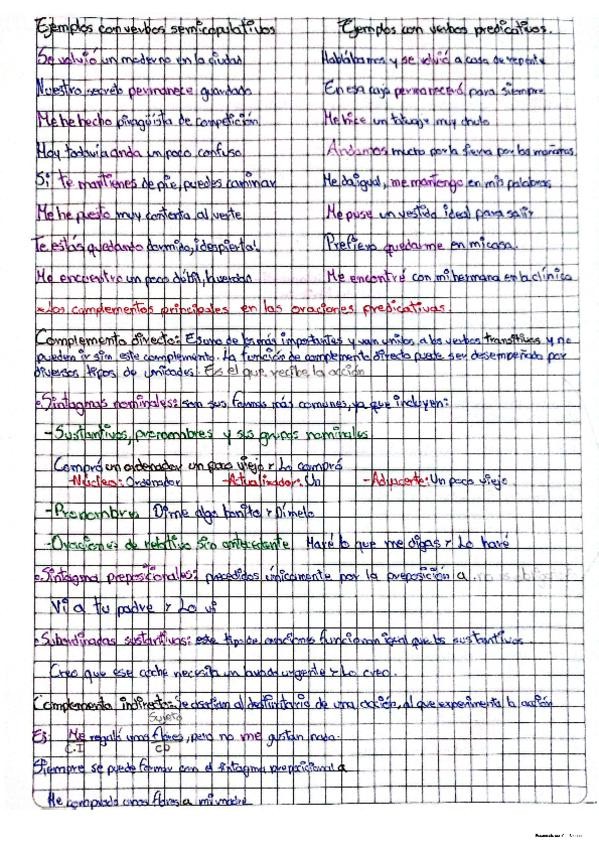 Ejemplos con verbos semicopulativos
Ejemplos con verbos predicativos.
Se volvió un moderno en la ciudad
Hablábamos y se volvió a casa de repente
Nuestro secreto permanece guardado
En esa caja permanecerá para siempre
Me he hecho piragüista de competición
Me hice un tatuaje muy chulo
Hoy todavía anda un poco confuso
Andamos mucho por la sierra por las mañanas
Si te mantienes de pie, puedes caminar
Me da igual, me mantengo en mis palabras
Me he puesto muy contenta al verte
Me puse un vestido ideal para salir
Te estás quedando dormido, ¡despierta!
Prefiero quedarme en mi casa.
Me encuentro un poco débil,
Me encontré con mi hermana en la clínica
Los complementos principales en las oraciones predicativas.
Complemento directo: Es uno de los más importantes y van unidos a los verbos transitivos y no
pueden ir sin este complemento. La función de complemento directo puede ser desempeñado por
diversos tipos de unidades. Es el que recibe la acción
Sintagmas nominales: son sus formas más comunes, ya que incluyen:
-Sustantivos, pronombres y sus grupos nominales
Compró un ordenador un poco viejo r Lo compró
-Núcleo: Ordenador -Actualizador: Un -Adyacente: Un poco viejo
-Pronombres Dime algo bonito r Dímelo
-Oraciones de relativo sin antecedente Haré lo que me digas r Lo haré
Sintagma preposicional: precedidos únicamente por la preposición a.
Vi a tu padre r Lo vi
Subordinadas sustantivas: este tipo de oraciones funcionan igual que los sustantivos
Creo que ese coche necesita un lavado urgente r Lo creo.
Complemento indirecto: Se al destinatario de una acción, al que experimenta la acción
Sujeto
Ej: Me regaló unas flores, pero no me gustan nada.
C.I CD
Siempre se puede formar con el sintagma preposicional a
He comprado unas flores a mi madre